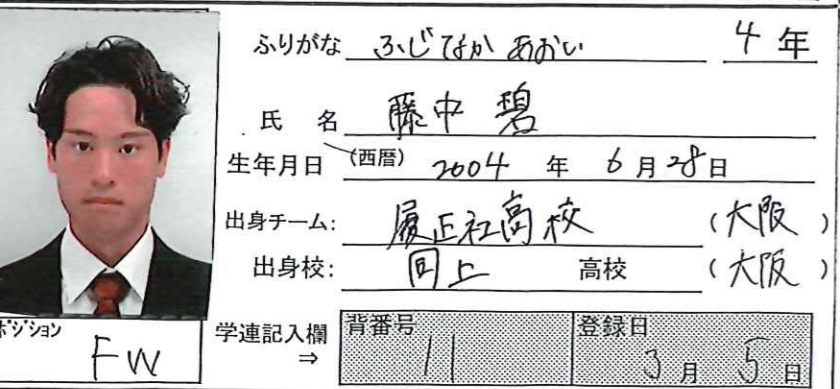 ふりがな ふじなか あおい 4 年
氏 名 藤中 碧
生年月日 (西暦) 2004 年 6 月 28 日
出身チーム: 履正社高校 (大阪)
出身校: 同上 高校 (大阪)
ポジション FW
学連記入欄 ⇒ 背番号 11 登録日 3 月 5 日